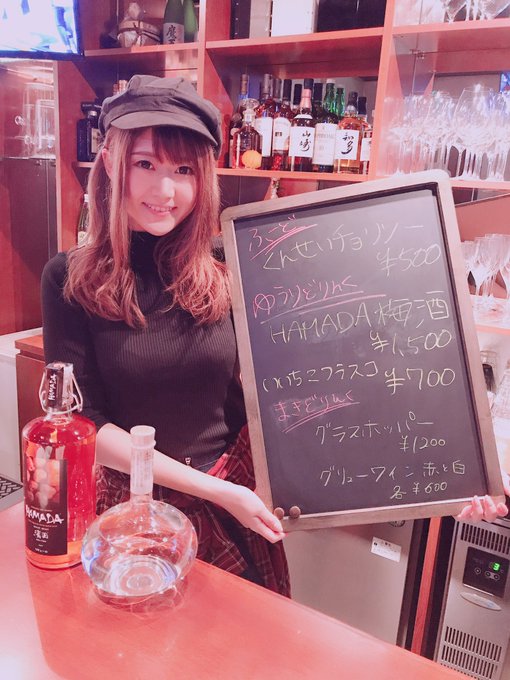 ふーど
くんせいチョリソー
¥500
ゆうりどりんく
HAMADA梅酒
¥1,500
いいちこフラスコ ¥700
まさどりんく
グラスホッパー
¥1200
グリューワイン 赤と白
各¥600
山崎
知多
HAMADA
HAMADA
濵田